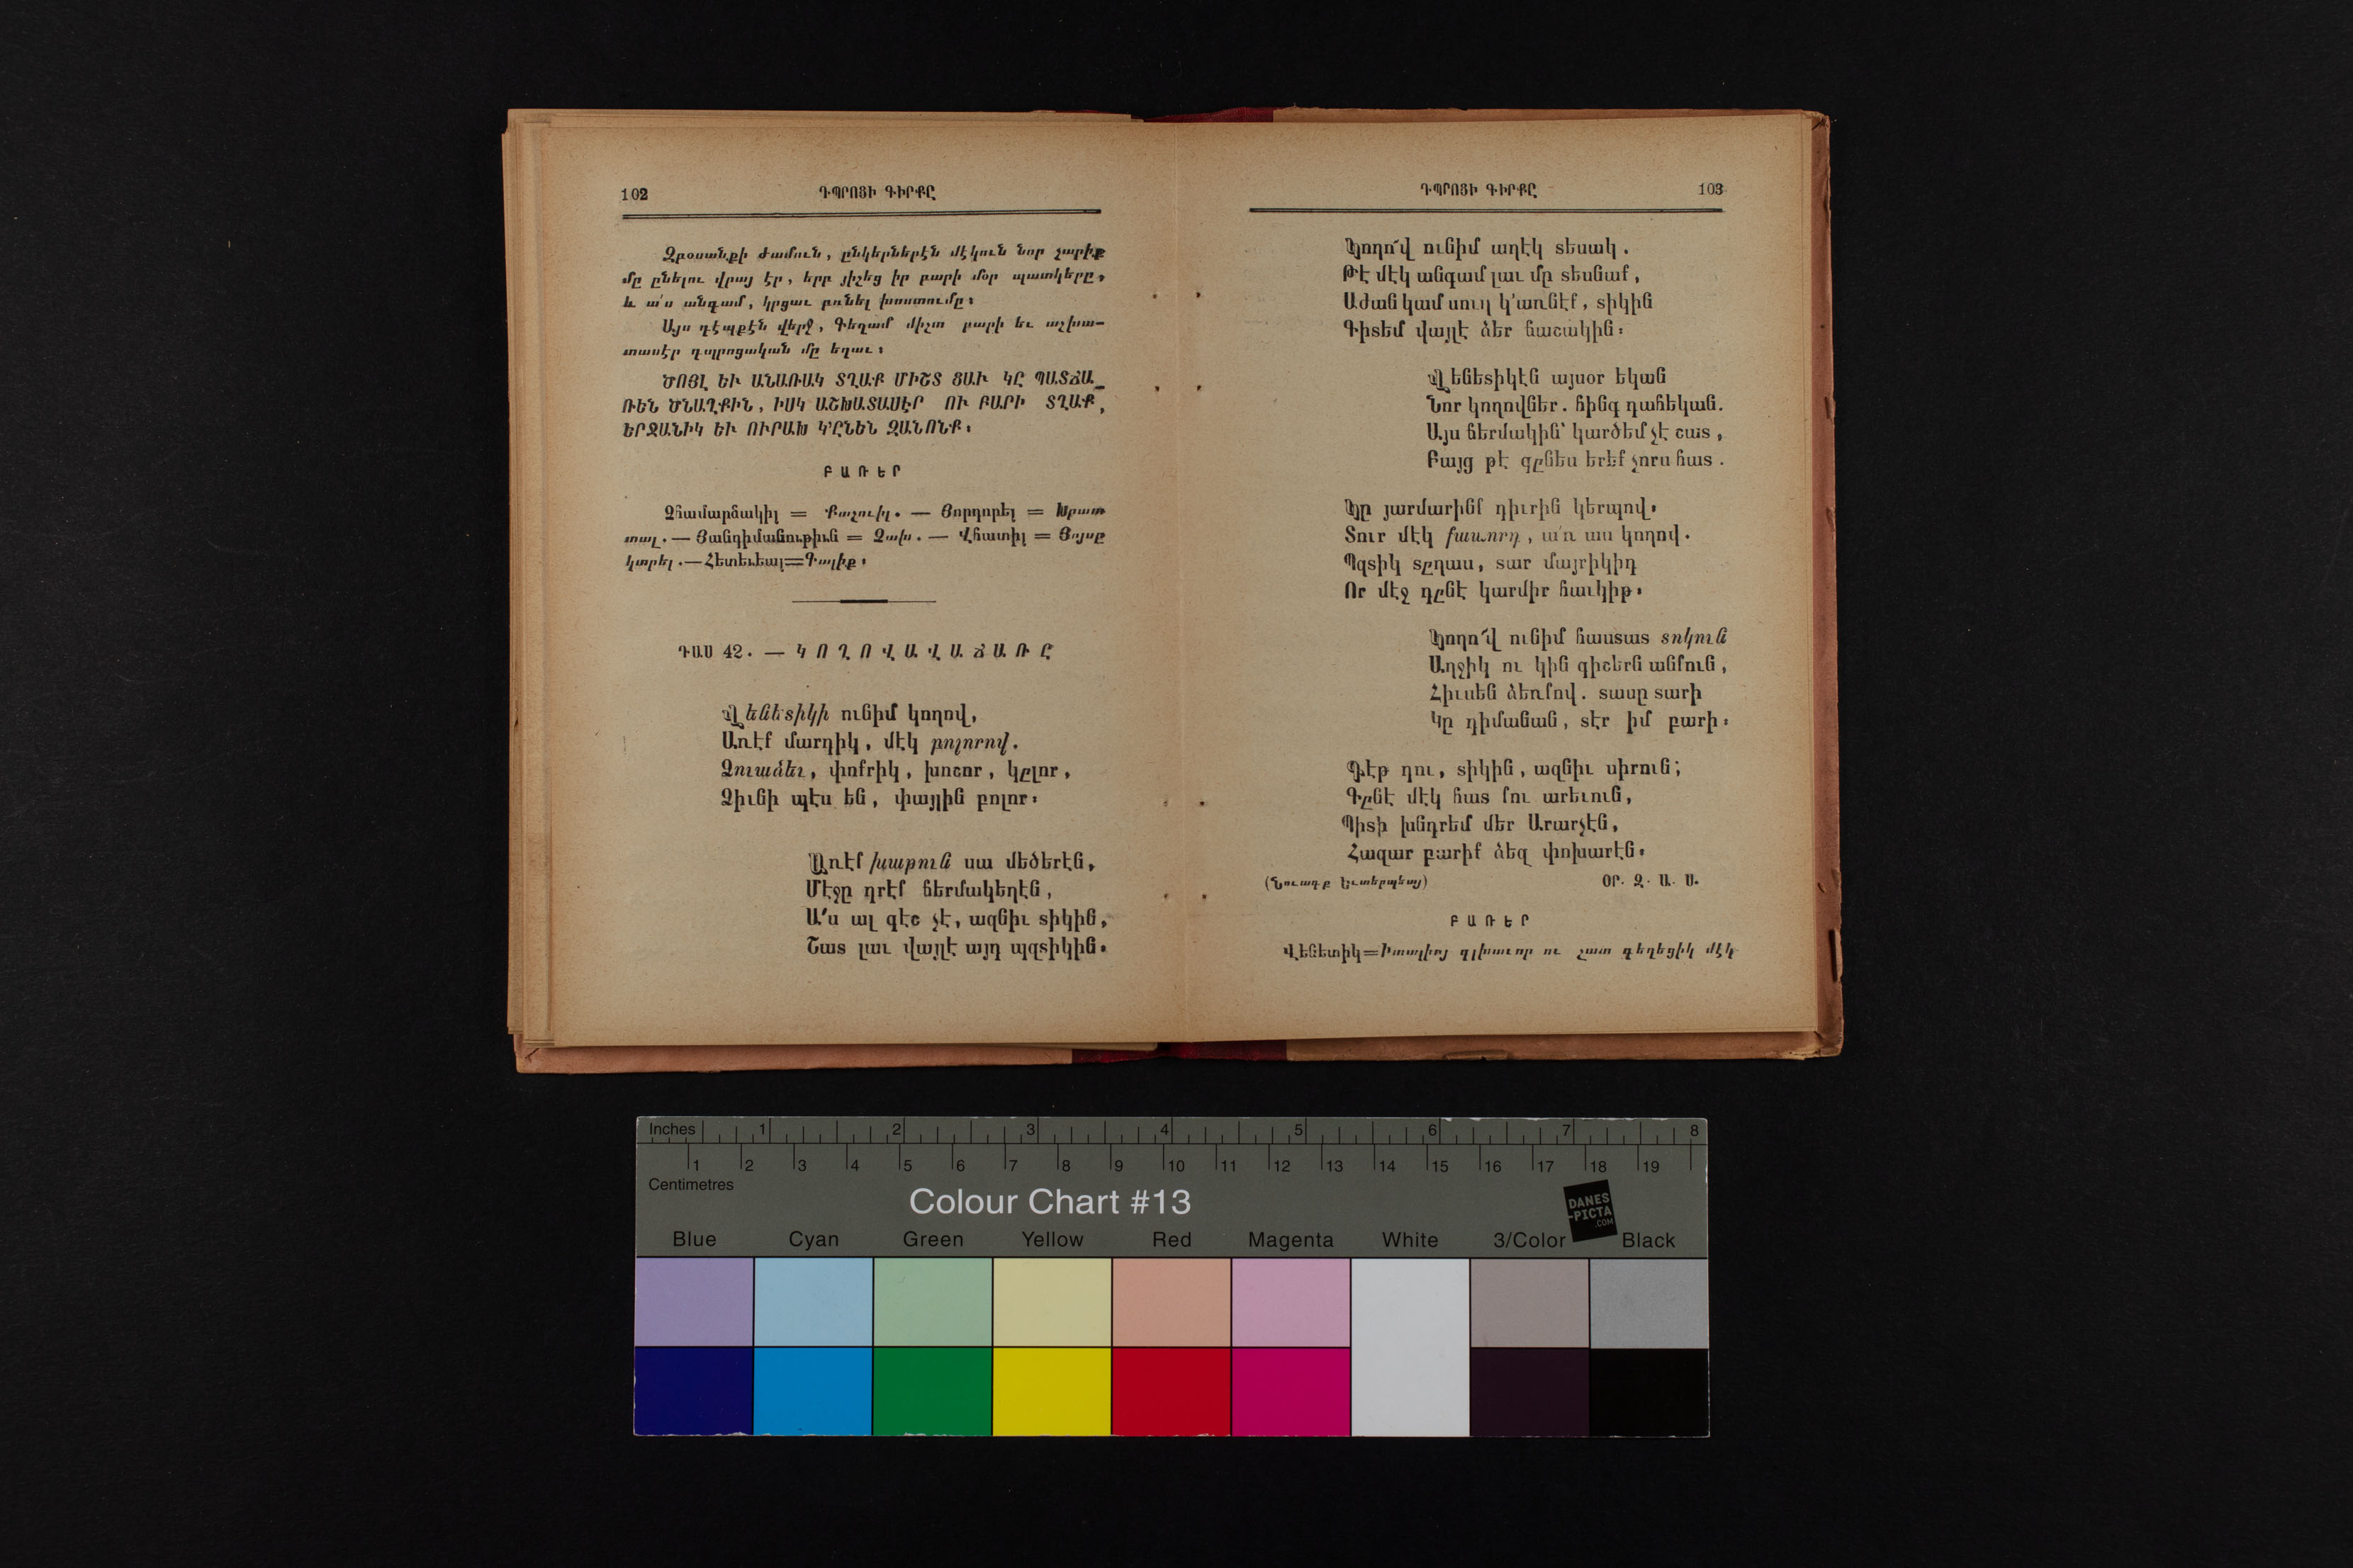 102 ԴՊՐՈՑԻ ԳԻՐՔԸ
Զբօսանքի ժամուն, ընկերներէն մէկուն նոր չարիք
մը ընելու վրայ էր, երբ յիշեց իր բարի մօր պատկերը,
և ա՛ս անգամ, կրցաւ բռնել խոստումը։
Այս դէպքէն վերջ, Գեղամ միշտ բարի եւ աշխա-
տասէր դպրոցական մը եղաւ։
ԾՈՅԼ ԵՒ ԱՆԱՌԱԿ ՏՂԱՔ ՄԻՇՏ ՑԱՒ ԿԸ ՊԱՏՃԱ_
ՌԵՆ ԾՆԱՂՔԻՆ, ԻՍԿ ԱՇԽԱՏԱՍԷՐ ՈՒ ԲԱՐԻ ՏՂԱՔ,
ԵՐՋԱՆԻԿ ԵՒ ՈՒՐԱԽ Կ՚ԸՆԵՆ ԶԱՆՈՆՔ։
ԲԱՌԵՐ
Չհամարձակիլ = Քաշուիլ. — Յորդորել = Խրատ
տալ. — Յանդիմանութիւն = Չախ. — Վհատիլ = Յոյսը
կտրել. — Հետեւեալ = Գալիք։
ԴԱՍ 42. — ԿՈՂՈՎԱՎԱՃԱՌԸ
Վենետիկի ունիմ կողով,
Առէք մարդիկ, մէկ բոլորով.
Ձուաձեւ, փոքրիկ, խոշոր, կըլոր,
Ձիւնի պէս են, փայլին բոլոր։
Առէք խաթուն սա մեծերէն,
Մէջը դրէք ճերմակեղէն,
Ա՛ս ալ գէշ չէ, ազնիւ տիկին,
Շատ լաւ վայլէ այդ պզտիկին։
ԴՊՐՈՑԻ ԳԻՐՔԸ 103
Կողո՜վ ունիմ աղէկ տեսակ.
Թէ մէկ անգամ լաւ մը տեսնաք,
Աժան կամ սուղ կ՚առնէք, տիկին
Գիտեմ վայլէ ձեր ճաշակին։
Վենետիկէն այսօր եկան
Նոր կողովներ. հինգ դահեկան.
Այս ճերմակին՝ կարծեմ չէ շատ,
Բայց թէ գընես երեք չորս հատ.
Կը յարմարինք դիւրին կերպով,
Տուր մէկ քառորդ, ա՛ռ աս կողով.
Պզտիկ տըղաս, տար մայրիկիդ
Որ մէջ դընէ կարմիր հաւկիթ։
Կողո՜վ ունիմ հաստատ տոկուն
Աղջիկ ու կին գիշերն անքուն,
Հիւսեն ձեռքով. տասը տարի
Կը դիմանան, տէր իմ բարի։
Գէթ դու, տիկին, ազնիւ սիրուն;
Գընէ մէկ հատ քու արեւուն,
Պիտի խնդրեմ մեր Արարչէն,
Հազար բարիք ձեզ փոխարէն։
(Նուագք Եւտերպեայ) ՕՐ. Զ. Ա. Ս.
ԲԱՌԵՐ
Վենետիկ = Իտալիոյ գլխաւոր ու շատ գեղեցիկ մէկ
Inches 1 2 3 4 5 6 7 8
1 2 3 4 5 6 7 8 9 10 11 12 13 14 15 16 17 18 19
Centimetres
Colour Chart #13
DANES
-PICTA
.COM
Blue Cyan Green Yellow Red Magenta White 3/Color Black